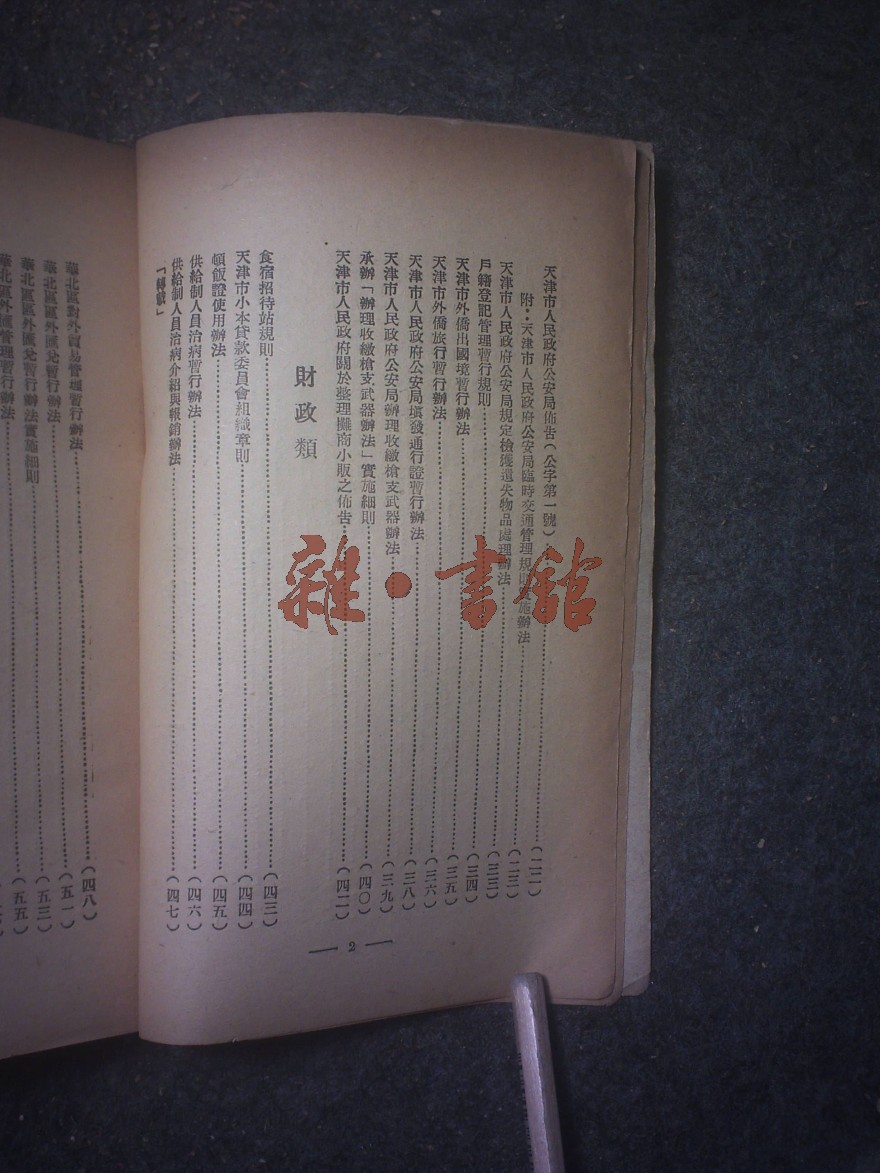 天津市人民政府公安局佈告（公字第一號）（二二）
附：天津市人民政府公安局臨時交通管理規則實施辦法（二三）
天津市人民政府公安局規定檢獲遺失物品處理辦法（三三）
戶籍登記管理暫行規則（三四）
天津市外僑出國境暫行辦法（三五）
天津市外僑旅行暫行辦法（三六）
天津市人民政府公安局塡發通行證暫行辦法（三八）
天津市人民政府公安局辦理收繳槍支武器辦法（三九）
承辦「辦理收繳槍支武器辦法」實施細則（四〇）
天津市人民政府關於整理攤商小販之佈告（四二）
財政類
食宿招待站規則（四三）
天津市小本貸款委員會組織章則（四四）
頓飯證使用辦法（四五）
供給制人員治病暫行辦法（四六）
供給制人員治病介紹與報銷辦法（四七）
2
華北區對外貿易管理暫行辦法（四八）
華北區外匯兌暫行辦法（五一）
華北區區外匯兌暫行辦法實施細則（五三）
華北區外匯管理暫行辦法（五五）
雜·書館